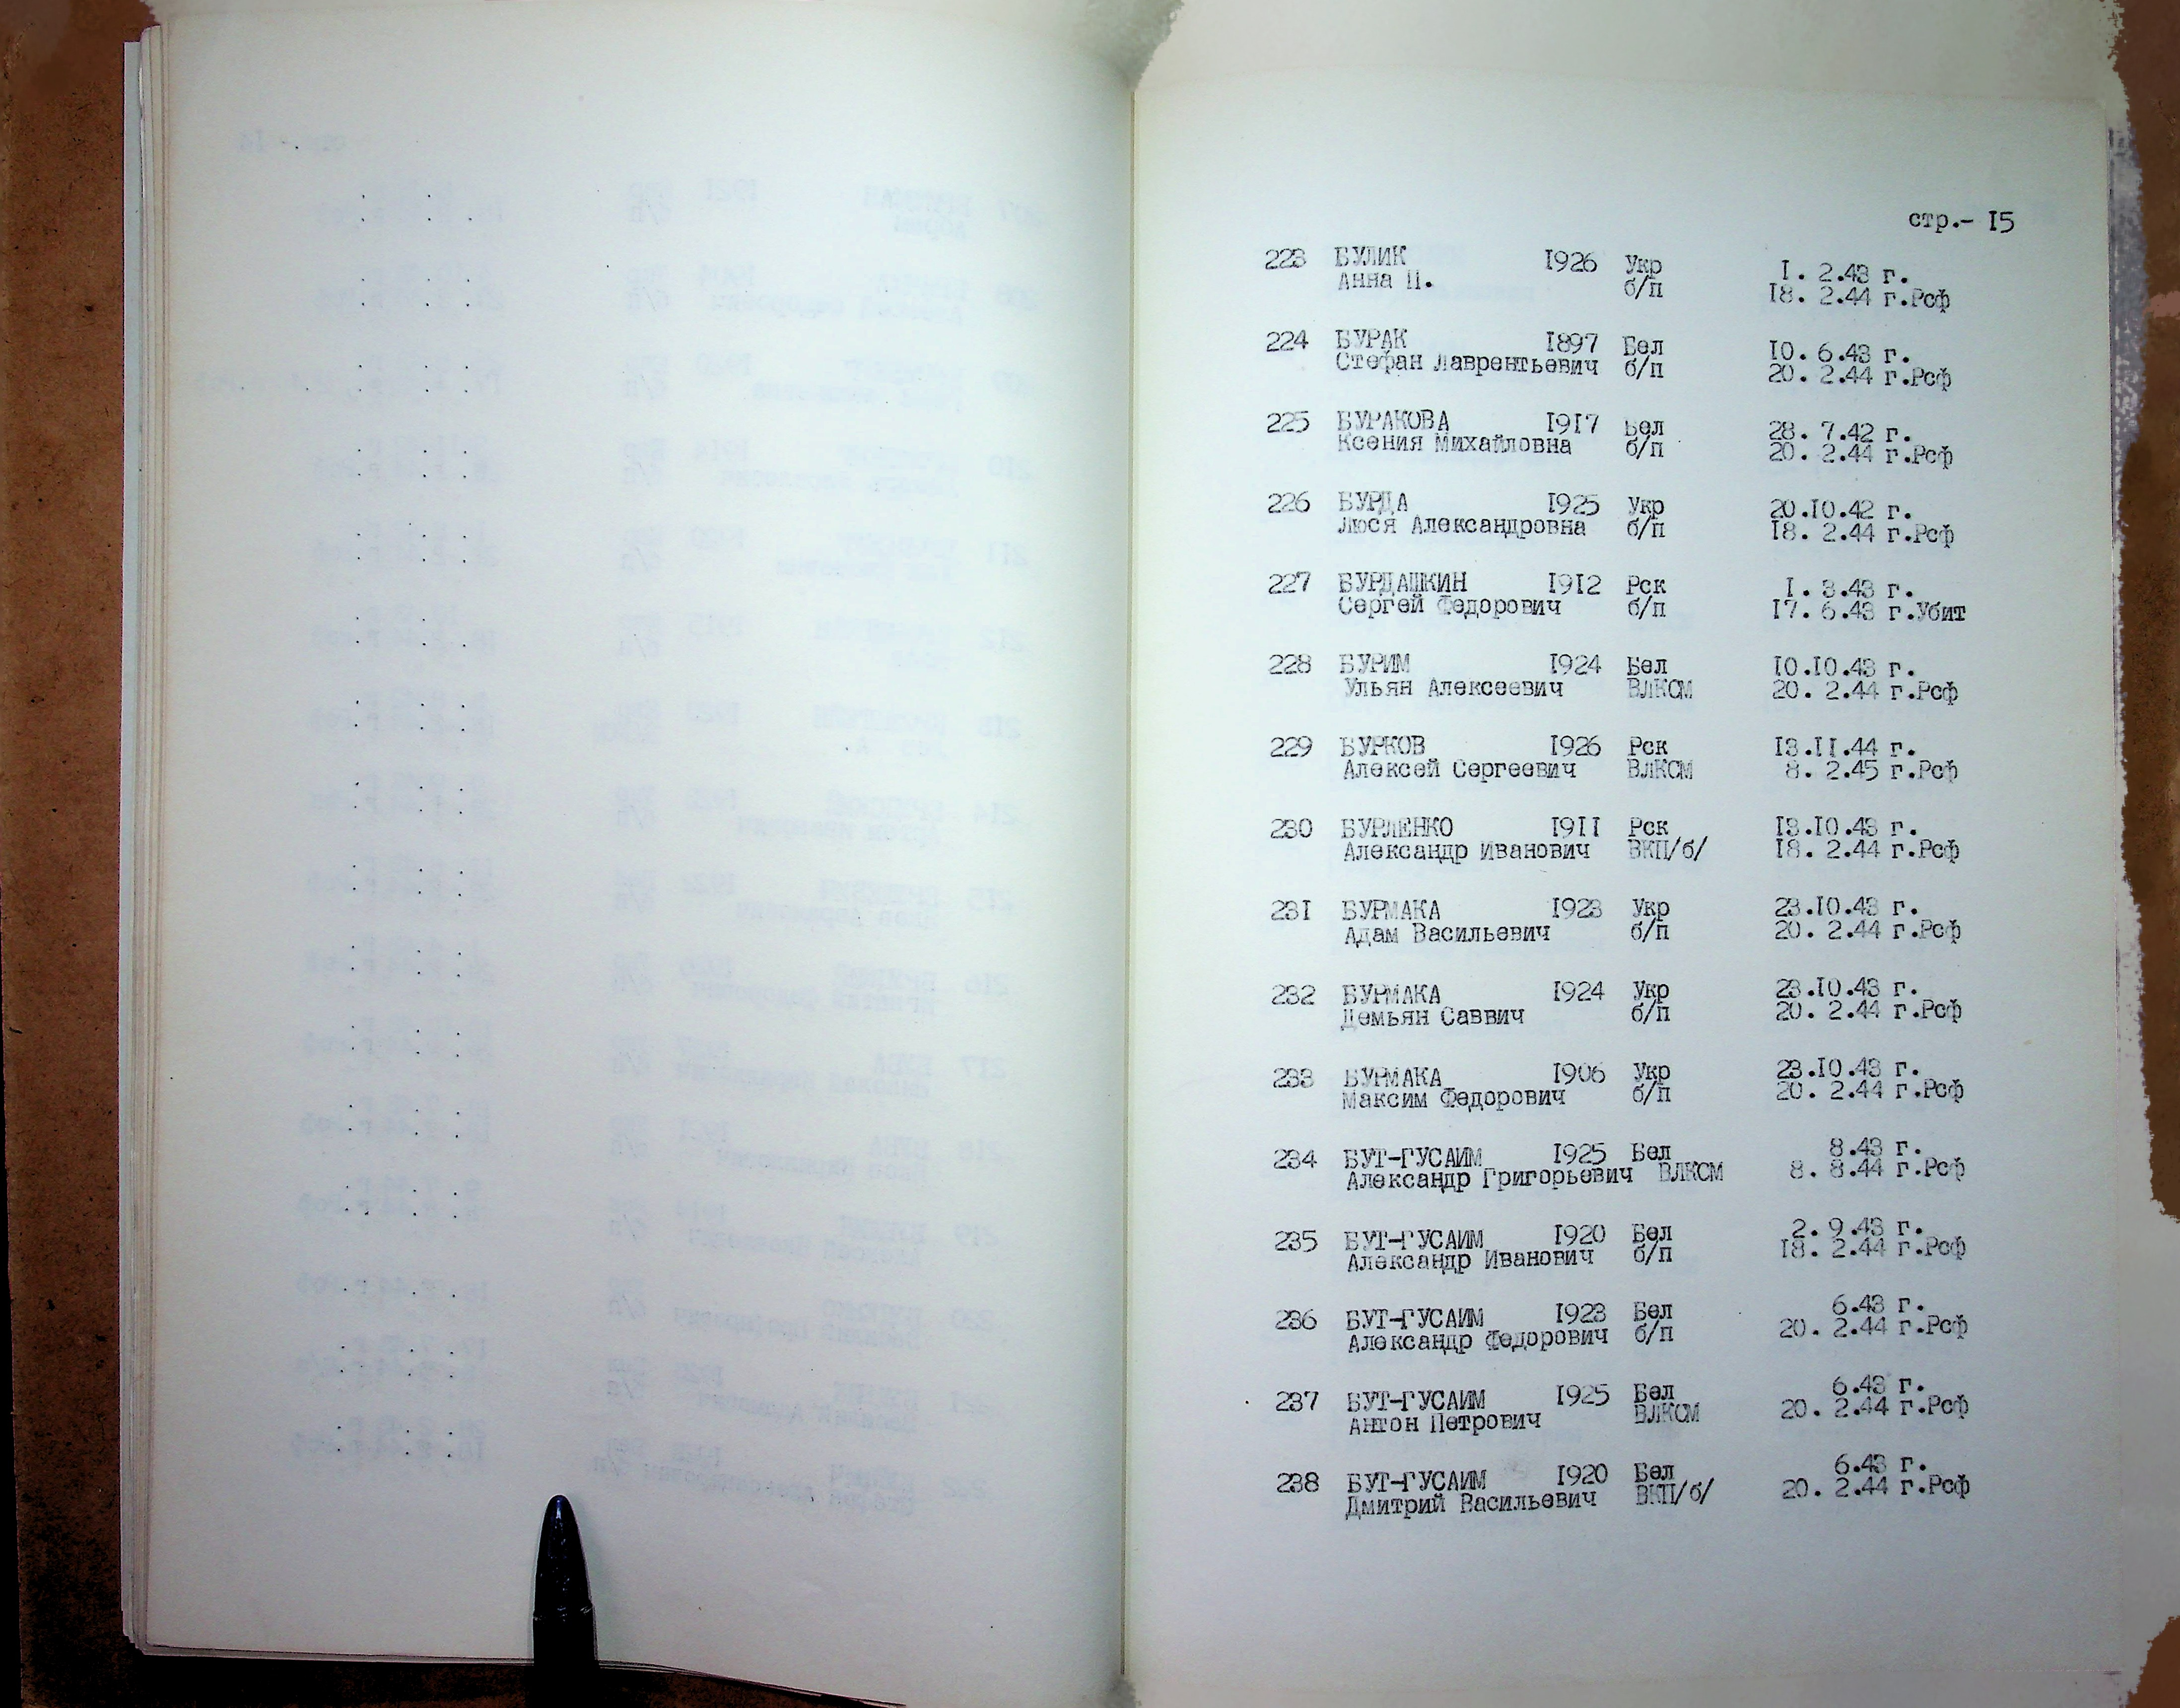 стр.- 15
223 БУЛИК 1926 Укр 1. 2.43 г.
Анна П. б/п 18. 2.44 г.Рсф
224 БУРАК 1897 Бел 10. 6.43 г.
Стефан Лаврентьевич б/п 20. 2.44 г.Рсф
225 БУРАКОВА 1917 Бел 28. 7.42 г.
Ксения Михайловна б/п 20. 2.44 г.Рсф
226 БУРДА 1925 Укр 20.10.42 г.
Люся Александровна б/п 18. 2.44 г.Рсф
227 БУРДАШКИН 1912 Рск 1. 3.43 г.
Сергей Федорович б/п 17. 6.43 г.Убит
228 БУРИМ 1924 Бел 10.10.43 г.
Ульян Алексеевич ВЛКСМ 20. 2.44 г.Рсф
229 БУРКОВ 1926 Рск 13.11.44 г.
Алексей Сергеевич ВЛКСМ 8. 2.45 г.Рсф
230 БУРЛЕНКО 1911 Рск 13.10.43 г.
Александр Иванович ВКП/б/ 18. 2.44 г.Рсф
231 БУРМАКА 1923 Укр 23.10.43 г.
Адам Васильевич б/п 20. 2.44 г.Рсф
232 БУРМАКА 1924 Укр 23.10.43 г.
Демьян Саввич б/п 20. 2.44 г.Рсф
233 БУРМАКА 1906 Укр 23.10.43 г.
Максим Федорович б/п 20. 2.44 г.Рсф
234 БУТ-ГУСАИМ 1925 Бел 8.43 г.
Александр Григорьевич ВЛКСМ 8. 8.44 г.Рсф
235 БУТ-ГУСАИМ 1920 Бел 2. 9.43 г.
Александр Иванович б/п 18. 2.44 г.Рсф
236 БУТ-ГУСАИМ 1923 Бел 6.43 г.
Александр Федорович б/п 20. 2.44 г.Рсф
237 БУТ-ГУСАИМ 1925 Бел 6.43 г.
Антон Петрович ВЛКСМ 20. 2.44 г.Рсф
238 БУТ-ГУСАИМ 1920 Бел 6.43 г.
Дмитрий Васильевич ВКП/б/ 20. 2.44 г.Рсф